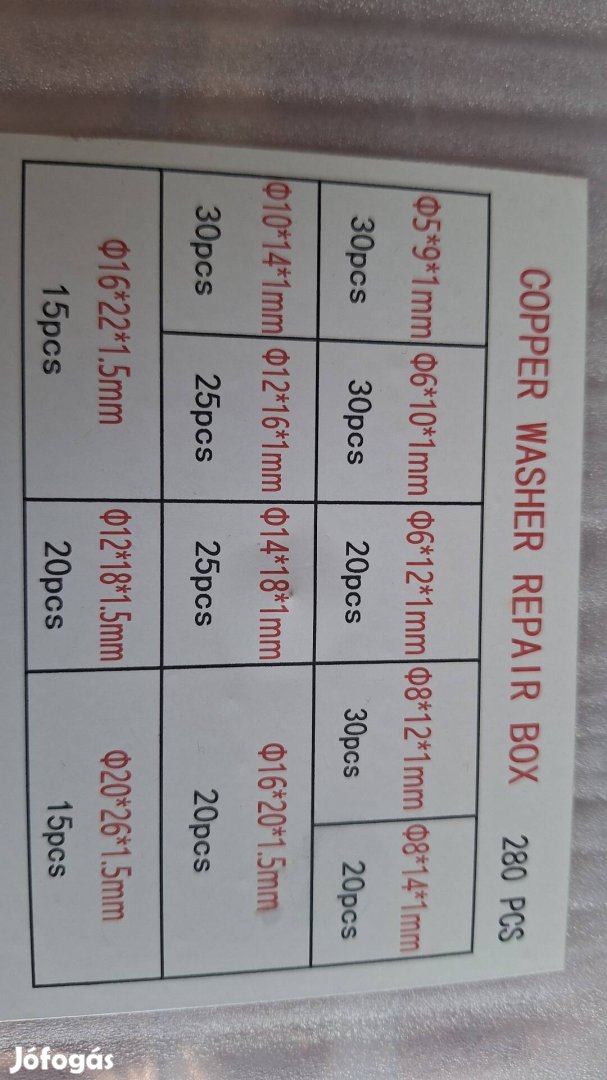 COPPER WASHER REPAIR BOX 280 PCS
Φ5*9*1mm Φ6*10*1mm Φ6*12*1mm Φ8*12*1mm Φ8*14*1mm
30pcs 30pcs 20pcs 30pcs 20pcs
Φ10*14*1mm Φ12*16*1mm Φ14*18*1mm Φ16*20*1.5mm
30pcs 25pcs 25pcs 20pcs
Φ16*22*1.5mm Φ12*18*1.5mm Φ20*26*1.5mm
15pcs 20pcs 15pcs
Jófogás